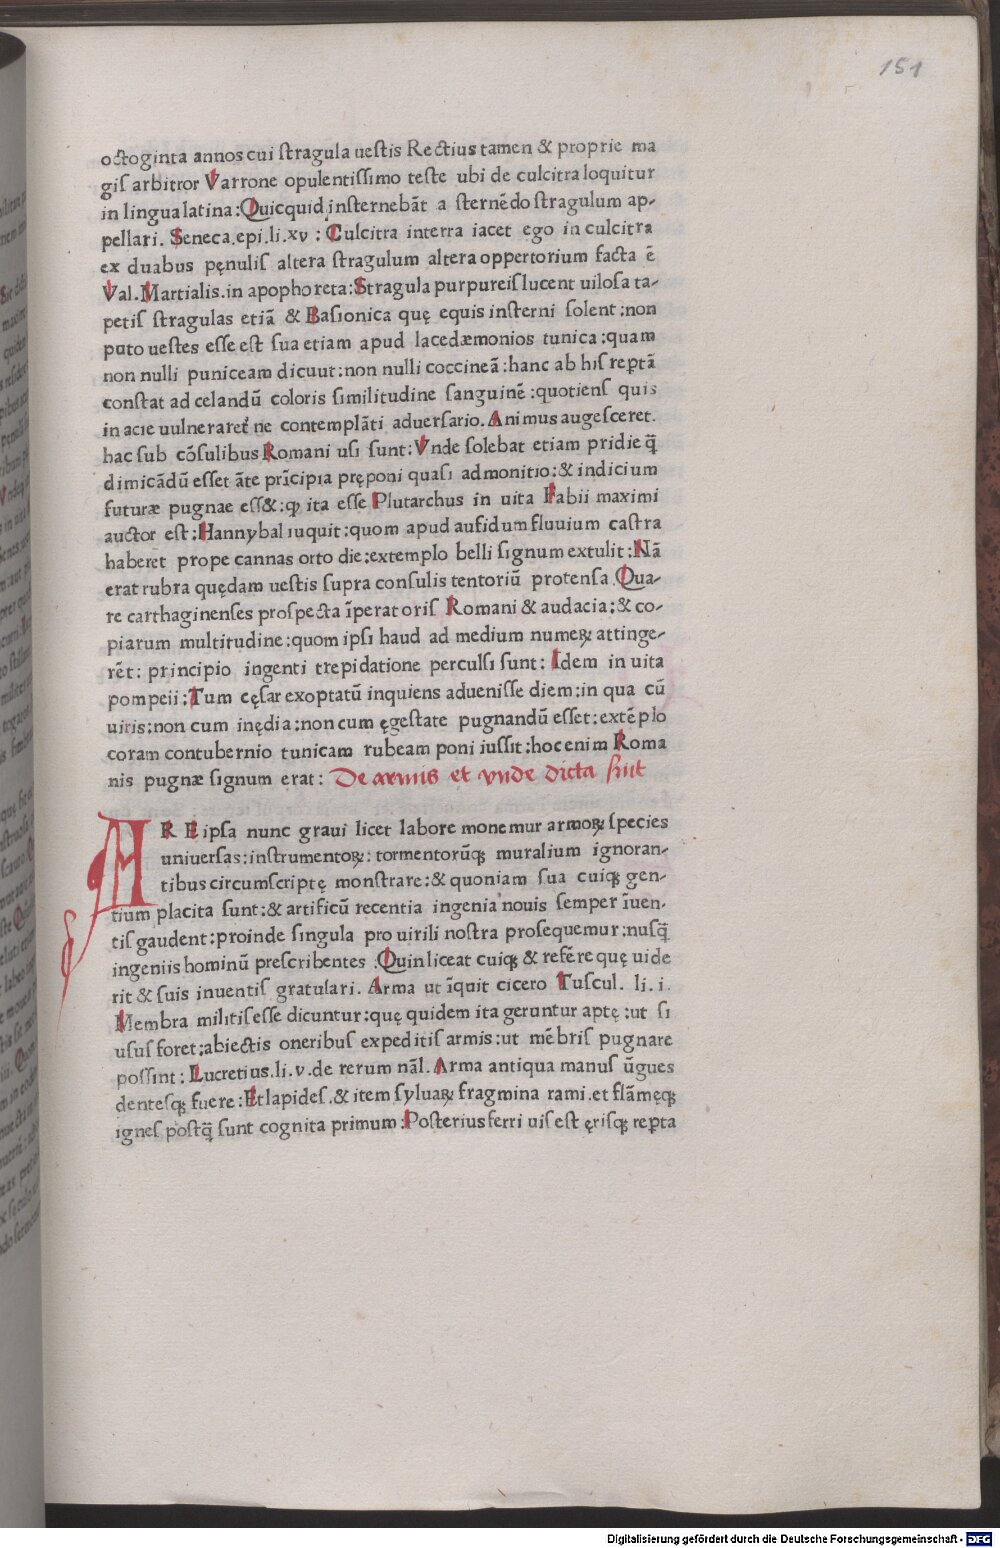 151
octoginta annos cui ſtragula ueſtis Rectius tamen & proprie ma
giſ arbitror Varrone opulentiſſimo teſte ubi de culcitra loquitur
in lingua latina: Quicquid inſternebāt a ſternēdo ſtragulum ap-
pellari. Seneca.epi.li.xv: Culcitra interra iacet ego in culcitra
ex duabus pęnuliſ altera ſtragulum altera oppertorium facta ē
Val.Martialis.in apophoreta: Stragula purpureiſ lucent uiloſa ta-
petiſ ſtragulas etiā & Basionica quę equis inſterni ſolent: non
puto ueſtes eſſe eſt ſua etiam apud lacedæmonios tunica: quam
non nulli puniceam dicuut: non nulli coccineā: hanc ab hiſ reptā
conſtat ad celandū coloris ſimilitudine ſanguinē: quotienſ quis
in acie uulneraret ne contemplāti aduerſario. Animus augeſceret.
hac ſub cōſulibus Romani uſi ſunt: Vnde ſolebat etiam pridie q̄
dimicādū eſſet āte prīcipia pręponi quaſi admonitio: & indicium
futuræ pugnae eſſ&: ꝙ ita eſſe Plutarchus in uita Fabii maximi
auctor eſt: Hannybal iuquit: quom apud aufidum fluuium caſtra
haberet prope cannas orto die: extemplo belli ſignum extulit: Nā
erat rubra quędam ueſtis ſupra conſulis tentoriū protenſa. Qua-
re carthaginenſes proſpecta īperatoriſ Romani & audacia: & co-
piarum multitudine: quom ipſi haud ad medium numeꝝ attinge-
rēt: principio ingenti trepidatione perculſi ſunt: Idem in uita
pompeii: Tum cęſar exoptatū inquiens adueniſſe diem: in qua cū
uiris: non cum inędia: non cum ęgeſtate pugnandū eſſet: extēplo
coram contubernio tunicam rubeam poni iuſſit: hoc enim Roma
nis pugnæ ſignum erat: De armis et vnde dicta ſint
A R E ipſa nunc graui licet labore monemur armoꝝ ſpecies
uniuerſas: inſtrumentoꝝ: tormentorūqꝫ muralium ignoran-
tibus circumſcriptę monſtrare: & quoniam ſua cuiqꝫ gen-
tium placita ſunt: & artificū recentia ingenia nouis ſemper īuen-
tiſ gaudent: proinde ſingula pro uirili noſtra proſequemur: nuſq̄
ingeniis hominū preſcribentes. Quin liceat cuiqꝫ & refēre quę uide
rit & ſuis inuentiſ gratulari. Arma ut īquit cicero Tuſcul. li. i.
Membra militiſ eſſe dicuntur: quę quidem ita geruntur aptę: ut ſi
uſus foret: abiectis oneribuſ expeditiſ armis: ut mēbriſ pugnare
poſſint: Lucretius.li.v.de rerum nāl. Arma antiqua manuſ ūgues
denteſqꝫ fuere: Et lapideſ.& item ſyluaꝝ fragmina rami.et flāmęqꝫ
igneſ poſtq̄ ſunt cognita primum: Poſterius ferri uiſ eſt ęriſqꝫ reperta
Digitalisierung gefördert durch die Deutsche Forschungsgemeinschaft - DFG